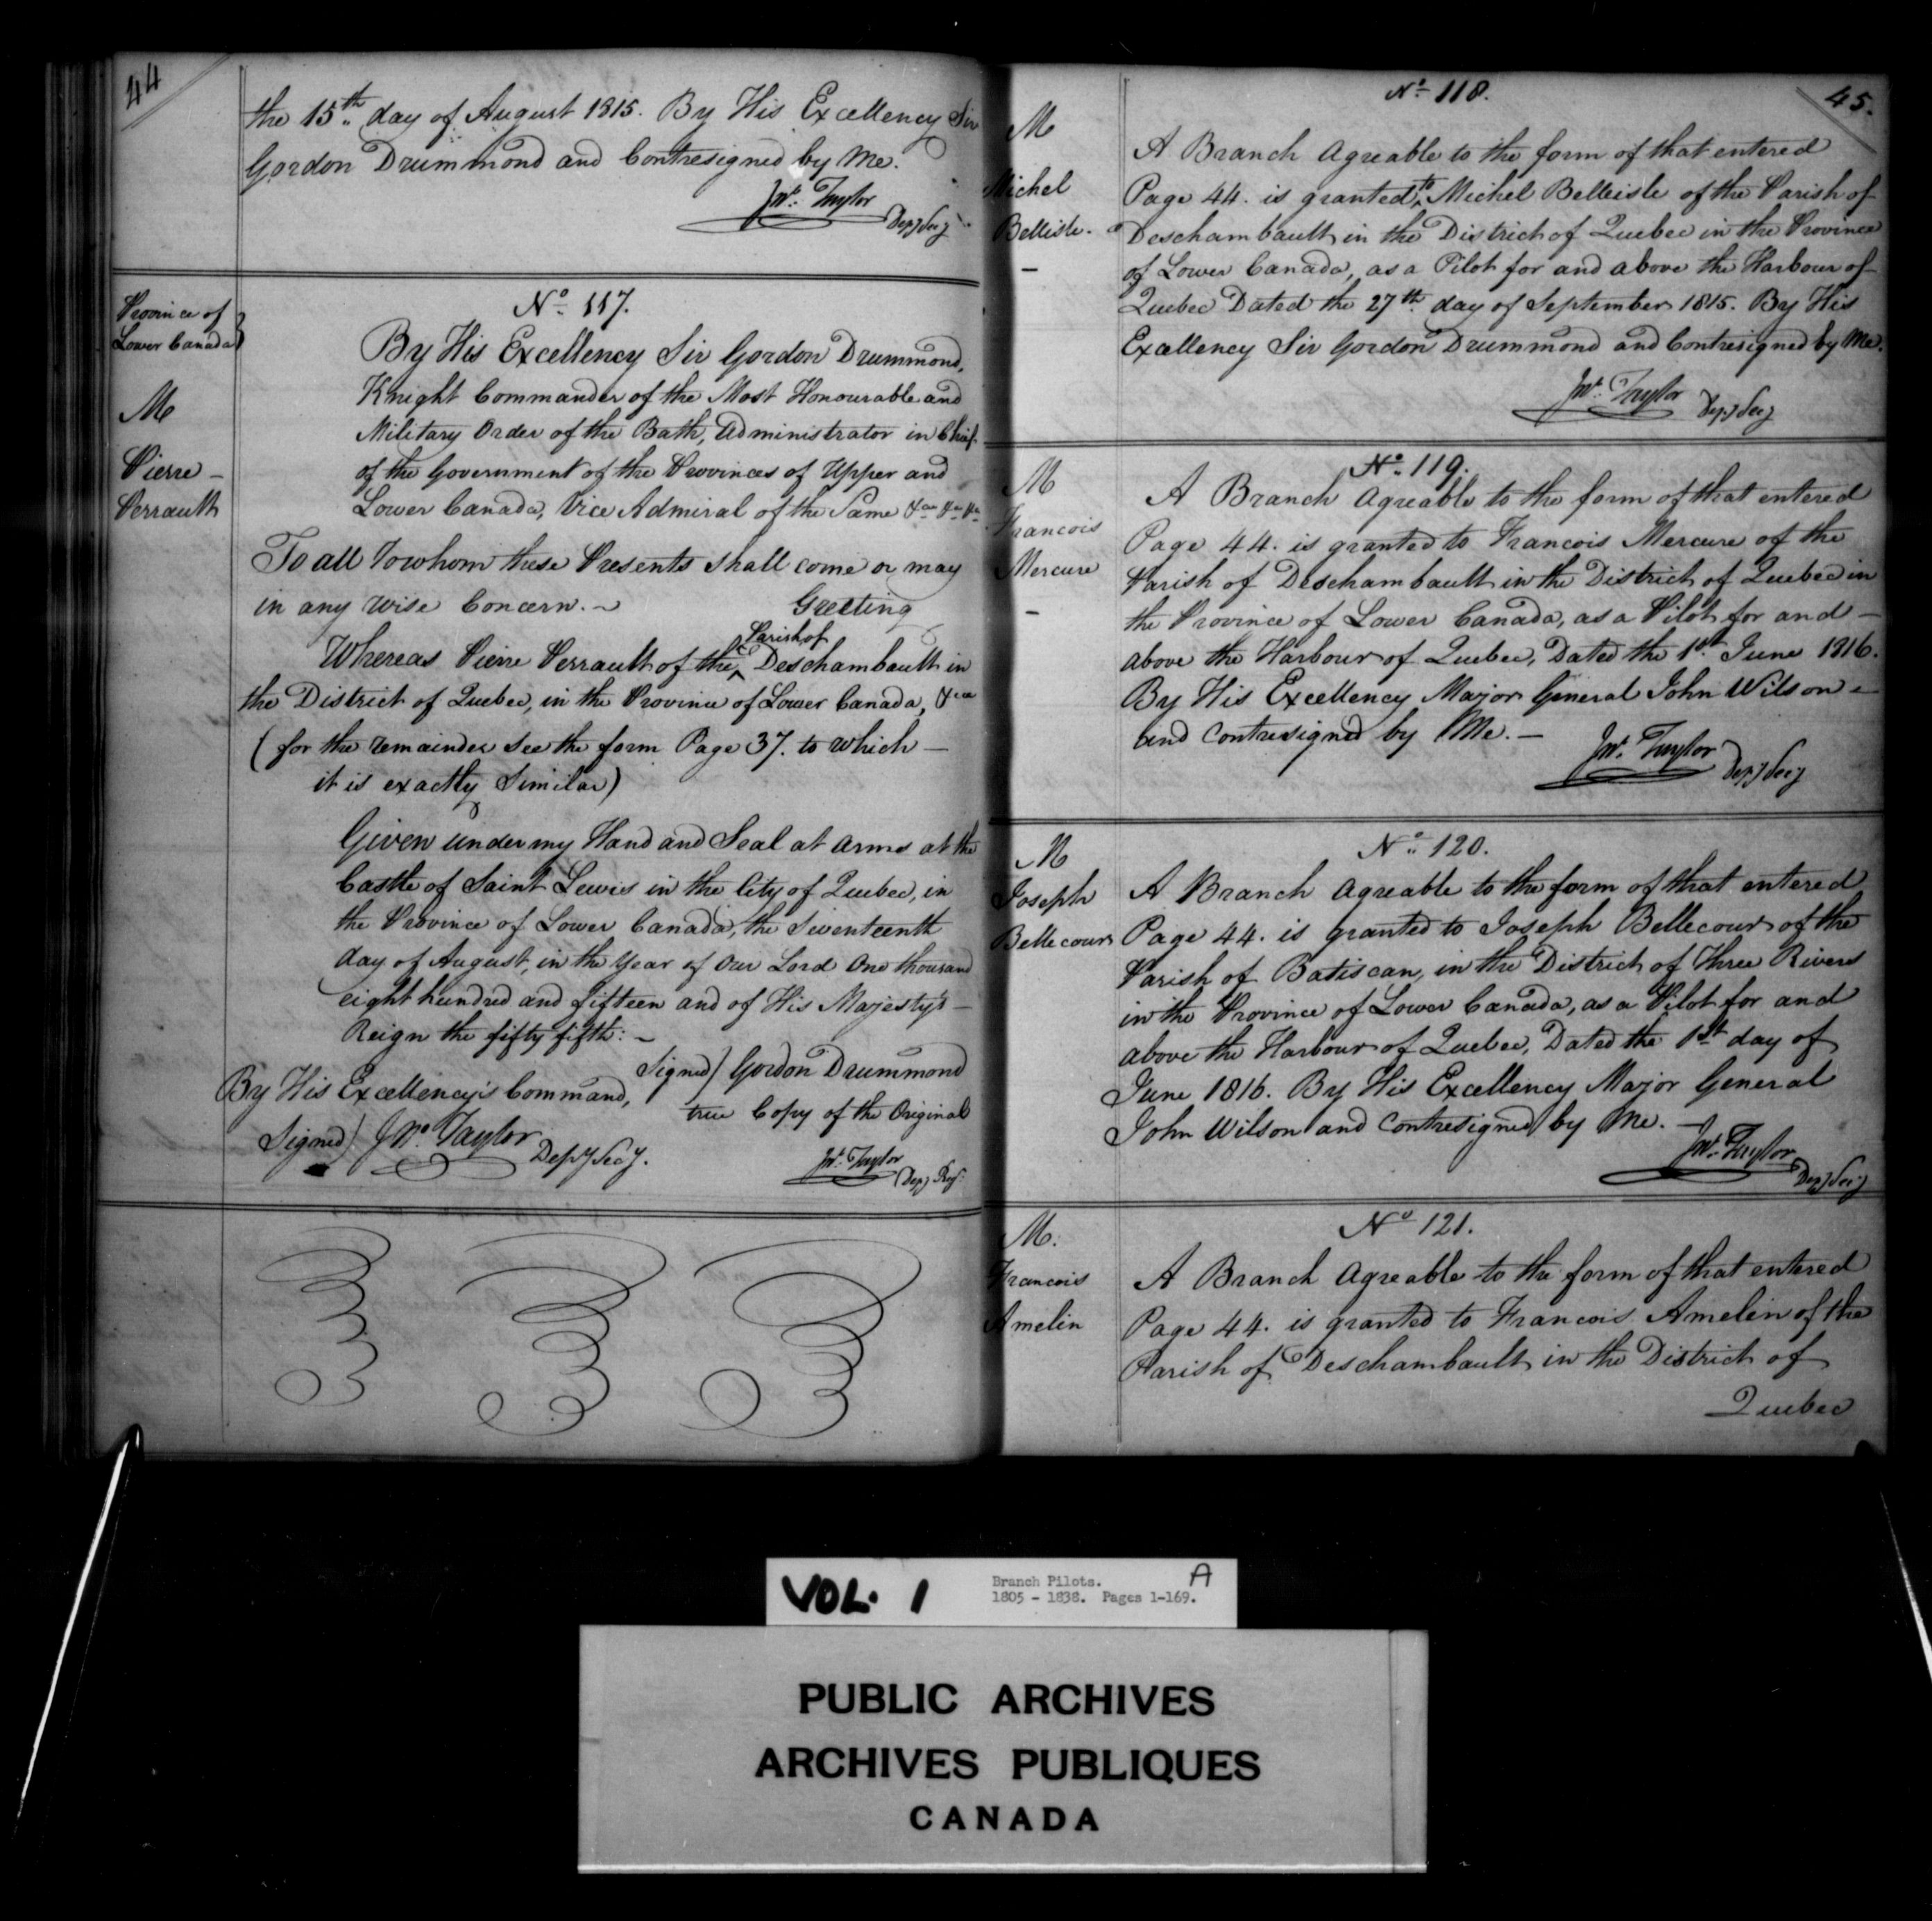 44
the 15th day of August 1815. By His Excellency Sir
Gordon Drummond and Contresigned by Me.
Jno. Taylor
Depy Secy
Province of
Lower Canada
M
Pierre
Perrault
No. 117.
By His Excellency Sir Gordon Drummond,
Knight Commander of the Most Honourable and
Military Order of the Bath, Administrator in Chief
of the Government of the Provinces of Upper and
Lower Canada, Vice Admiral of the Same &ca &ca &ca
To all to whom these Presents shall come or may
in any wise Concern. ~ Greeting
Whereas Pierre Perrault of the ^Parish of Deschambault in
the District of Quebec, in the Province of Lower Canada, &ca
(for the remainder see the form Page 37. to which —
it is exactly Similar)
Given under my Hand and Seal at Arms at the
Castle of Saint Lewis in the City of Quebec, in
the Province of Lower Canada, the Seventeenth
day of August, in the Year of Our Lord One thousand
eight hundred and fifteen and of His Majesty's —
Reign the fifty fifth: ~
Signed) Gordon Drummond
By His Excellency's Command,
true Copy of the Original
Signed) Jno. Taylor
Depy Secy.
Jno. Taylor
Depy Reg:
45.
No. 118.
M
Michel
Bellisle.
A Branch Agreable to the form of that entered
Page 44. is granted ^to Michel Belleisle of the Parish of
Deschambault in the District of Quebec in the Province
of Lower Canada, as a Pilot for and above the Harbour of
Quebec Dated the 27th day of September 1815. By His
Excellency Sir Gordon Drummond and Contresigned by Me.
Jno. Taylor
Depy Secy
No. 119.
M
Francois
Mercure
A Branch Agreable to the form of that entered
Page 44. is granted to Francois Mercure of the
Parish of Deschambault in the District of Quebec in
the Province of Lower Canada, as a Pilot for and —
above the Harbour of Quebec, Dated the 1st. June 1816.
By His Excellency Major General John Wilson —
and Contresigned by Me. —
Jno. Taylor
Depy Secy
No. 120.
M
Joseph
Bellecour
A Branch Agreable to the form of that entered
Page 44. is granted to Joseph Bellecour of the
Parish of Batiscan, in the District of Three Rivers
in the Province of Lower Canada, as a Pilot for and
above the Harbour of Quebec, Dated the 1st day of
June 1816. By His Excellency Major General
John Wilson and Contresigned by Me. —
Jno. Taylor
Depy Secy
No. 121.
M.
Francois
Amelin
A Branch Agreable to the form of that entered
Page 44. is granted to Francois Amelin of the
Parish of Deschambault in the District of
Quebec
VOL. 1
Branch Pilots.
1805 - 1838. Pages 1-169.
A
PUBLIC ARCHIVES
ARCHIVES PUBLIQUES
CANADA